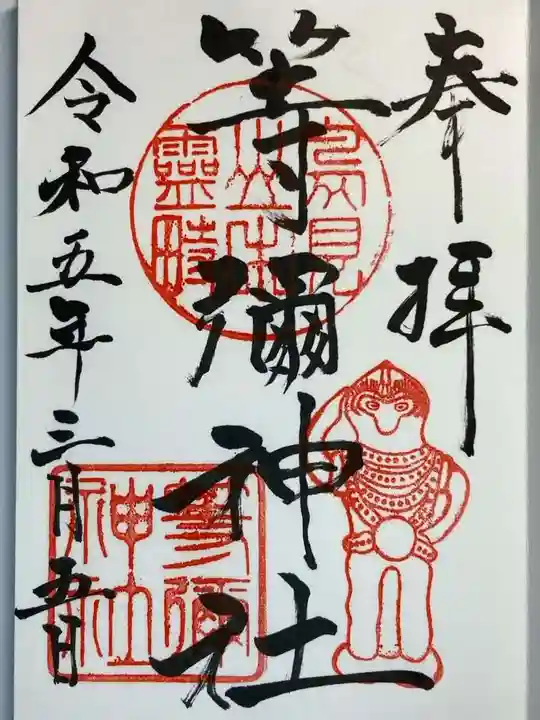 奉拝
等彌神社
令和五年三月五日
鳥見
山中
靈畤
等彌
神社